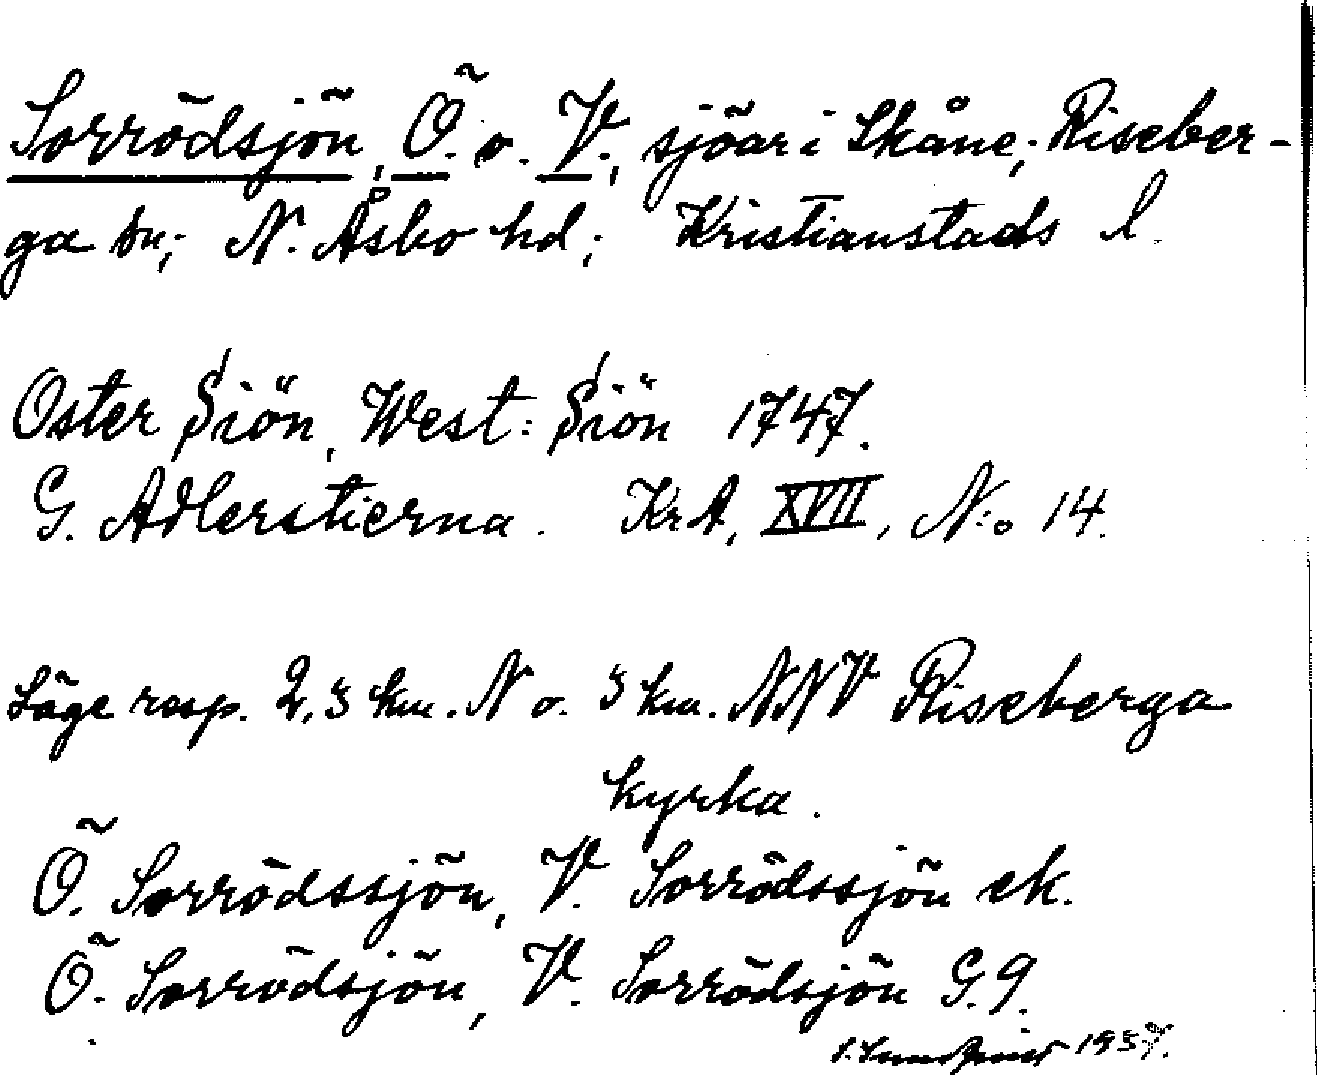 Sorrödsjön, Ö. o. V., sjöar i Skåne; Riseber-
ga sn; N. Åsbo hd; Kristianstads l.
Oster Siön, West: Siön 1747.
G. Adlerstierna. KrA, XVII, N:o 14.
Läge resp. 2,3 km. N o. 3 km. NNV Riseberga
kyrka.
Ö. Sorrödssjön, V. Sorrödssjön ek.
Ö. Sorrödsjön, V. Sorrödsjön G.9.
1937.